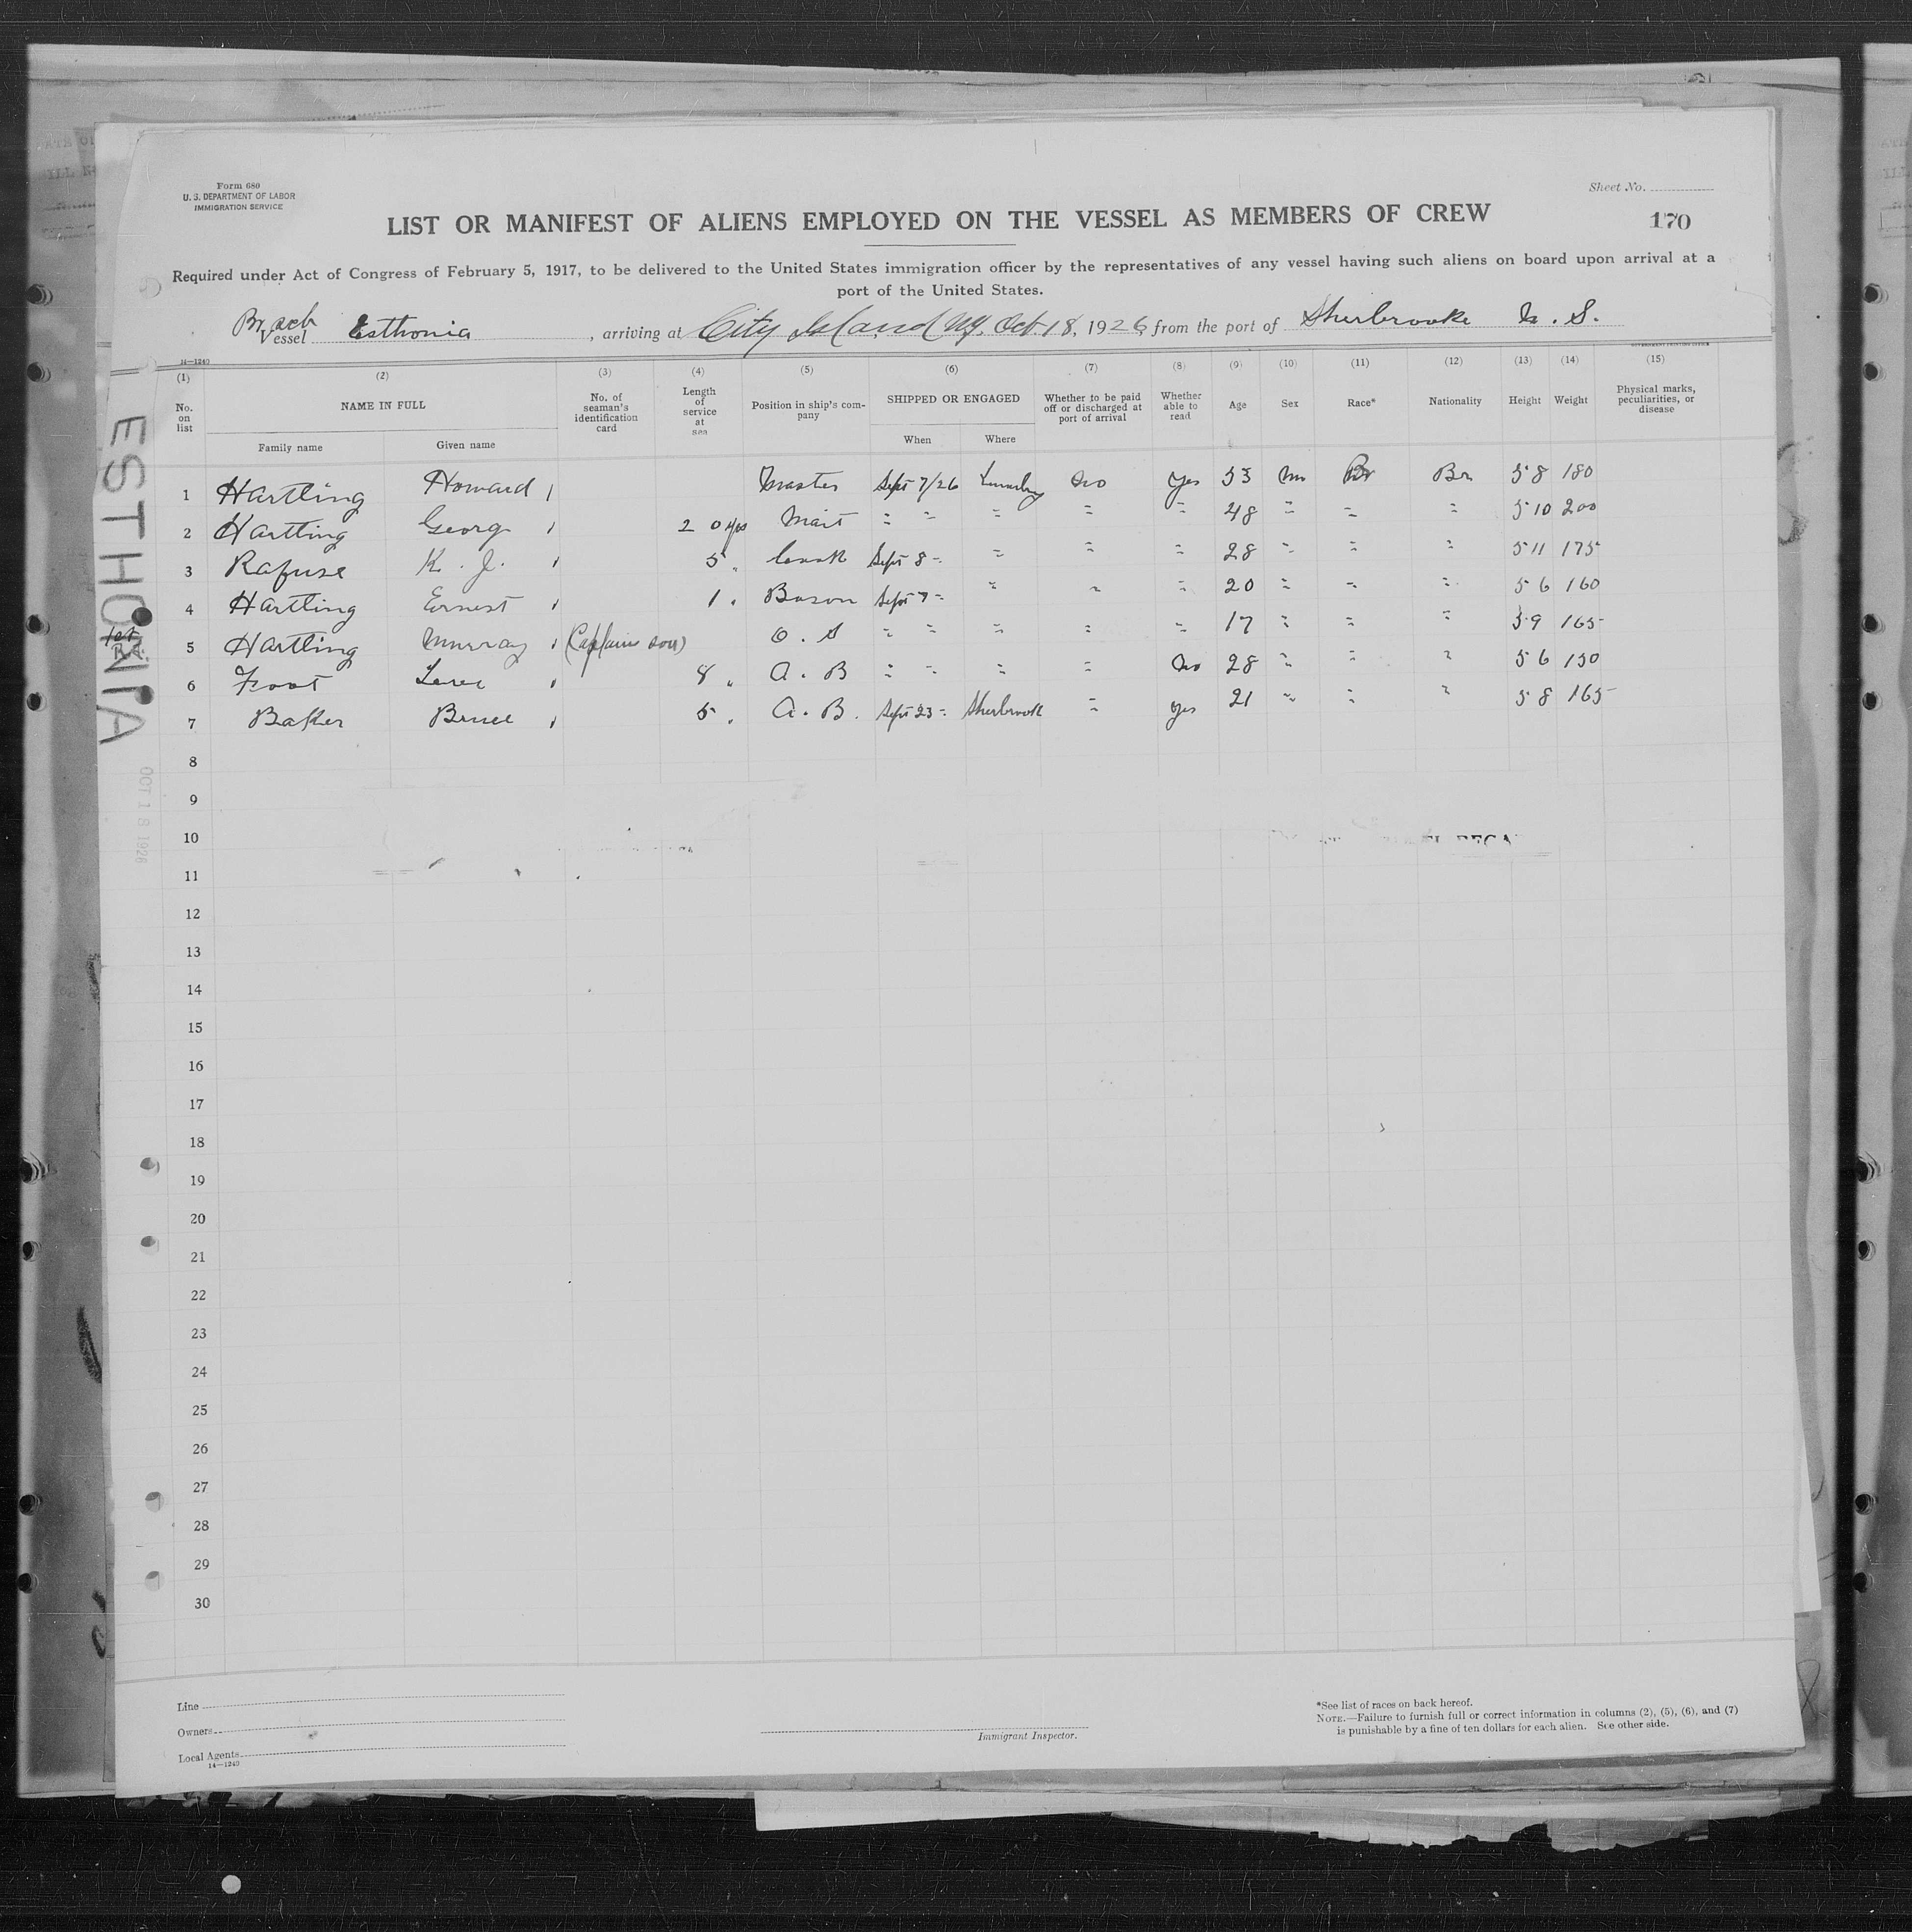 Form 680
U. S. DEPARTMENT OF LABOR
IMMIGRATION SERVICE
Sheet No.
LIST OR MANIFEST OF ALIENS EMPLOYED ON THE VESSEL AS MEMBERS OF CREW
170
Required under Act of Congress of February 5, 1917, to be delivered to the United States immigration officer by the representatives of any vessel having such aliens on board upon arrival at a
port of the United States.
Br. sch Vessel Esthonia, arriving at City Island NY. Oct 18, 1926, from the port of Sherbrooke N. S.
14—1240
(1) (2) (3) (4) (5) (6) (7) (8) (9) (10) (11) (12) (13) (14) (15)
No. on list NAME IN FULL No. of seaman's identification card Length of service at sea Position in ship's company SHIPPED OR ENGAGED Whether to be paid off or discharged at port of arrival Whether able to read Age Sex Race* Nationality Height Weight Physical marks, peculiarities, or disease
Family name Given name When Where
1 Hartling Howard Master Sept 7/26 Lunenburg No Yes 53 M Br Br 5 8 180
2 Hartling George 20 yrs Mait " " " " " 48 " " " 5 10 200
3 Rafuse K. J. 5 " Cook Sept 8 " " " " 28 " " " 5 11 175
4 Hartling Ernest 1 " Boson Sept 7 " " " " 20 " " " 5 6 160
5 Hartling Murray (Captains son) O. S " " " " " 17 " " " 5 9 165
6 Foot 8 " A. B " " " " No 28 " " " 5 6 150
7 Baker Bruce 5 " A. B. Sept 23 " Sherbrook " Yes 21 " " " 5 8 165
8
9
10
11
12
13
14
15
16
17
18
19
20
21
22
23
24
25
26
27
28
29
30
ESTHONIA
OCT 18 1926
Line
Owners
Local Agents
14—1240
Immigrant Inspector.
*See list of races on back hereof.
NOTE.—Failure to furnish full or correct information in columns (2), (5), (6), and (7)
is punishable by a fine of ten dollars for each alien. See other side.